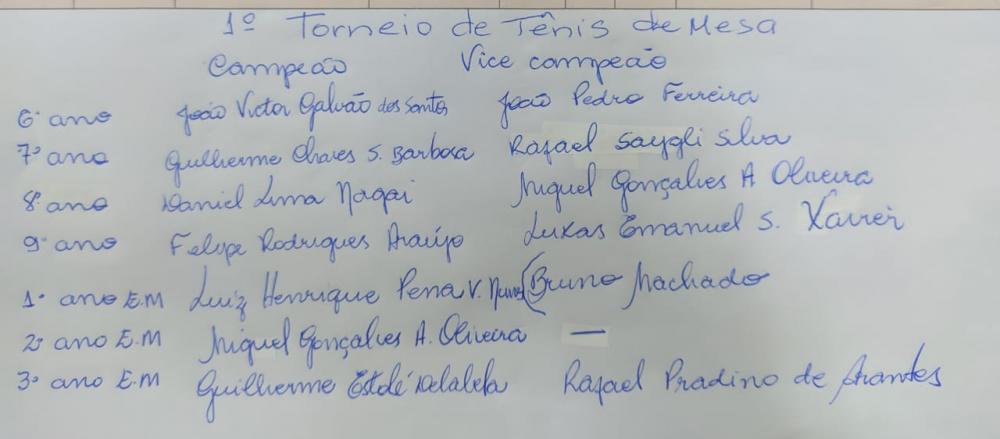 1º Torneio de Tênis de Mesa
Campeão Vice campeão
6º ano João Victor Galvão dos Santos João Pedro Ferreira
7º ano Guilherme Chaves S. Barbosa Rafael Saygli Silva
8º ano Daniel Lima Nagai Miguel Gonçalves A Oliveira
9º ano Felipe Rodrigues Araújo Lukas Emanuel S. Xavier
1º ano E.M Luiz Henrique Pena V. Nunes (Bruno Machado
2º ano E.M Miguel Gonçalves A. Oliveira —
3º ano E.M Guilherme Rafael Pradino de Arantes